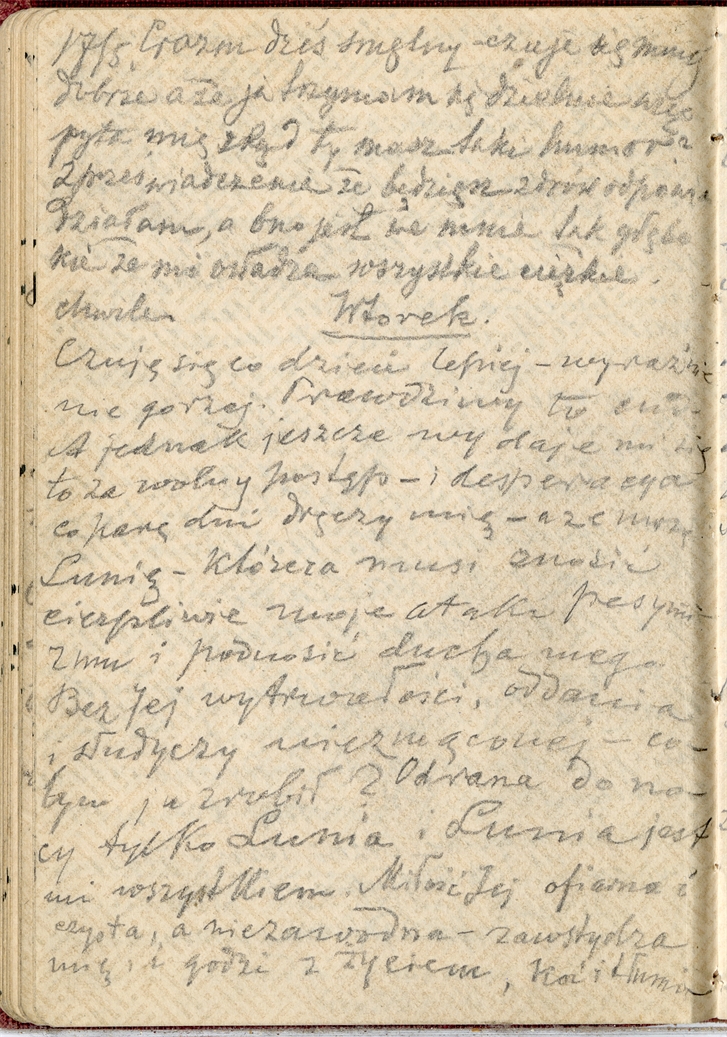 17/5 dziś smętny – czuje się mniej
dobrze a że ja trzymam się dzielnie więc
pyta mię skąd ty masz taki humor?
Z przeświadczenia że będziesz zdrów odpowie-
działam, a ono jest we mnie tak głębo
kie że mi osładza wszystkie ciężkie
chwile. Wtorek.
Czuję się co dzień lepiej – wyraźnie
nie gorzej. Prawdziwy to cud.
A jednak jeszcze wydaje mi się
to za wolny postęp – i desperacya
co parę dni dręczy mię – a ze mną
Lunię – która musi znosić
cierpliwie moje ataki pesymi-
zmu i podnosić ducha mego
Bez Jej wytrwałości, oddania
i słodyczy niezmąconej – co-
bym ja zrobił? Od rana do no-
cy tylko Lunia i Lunia jest
mi wszystkiem. Miłość Jej ofiarna i
czysta, a niezawodna – zawstydza
mię i godzi z życiem, koi i tłumi